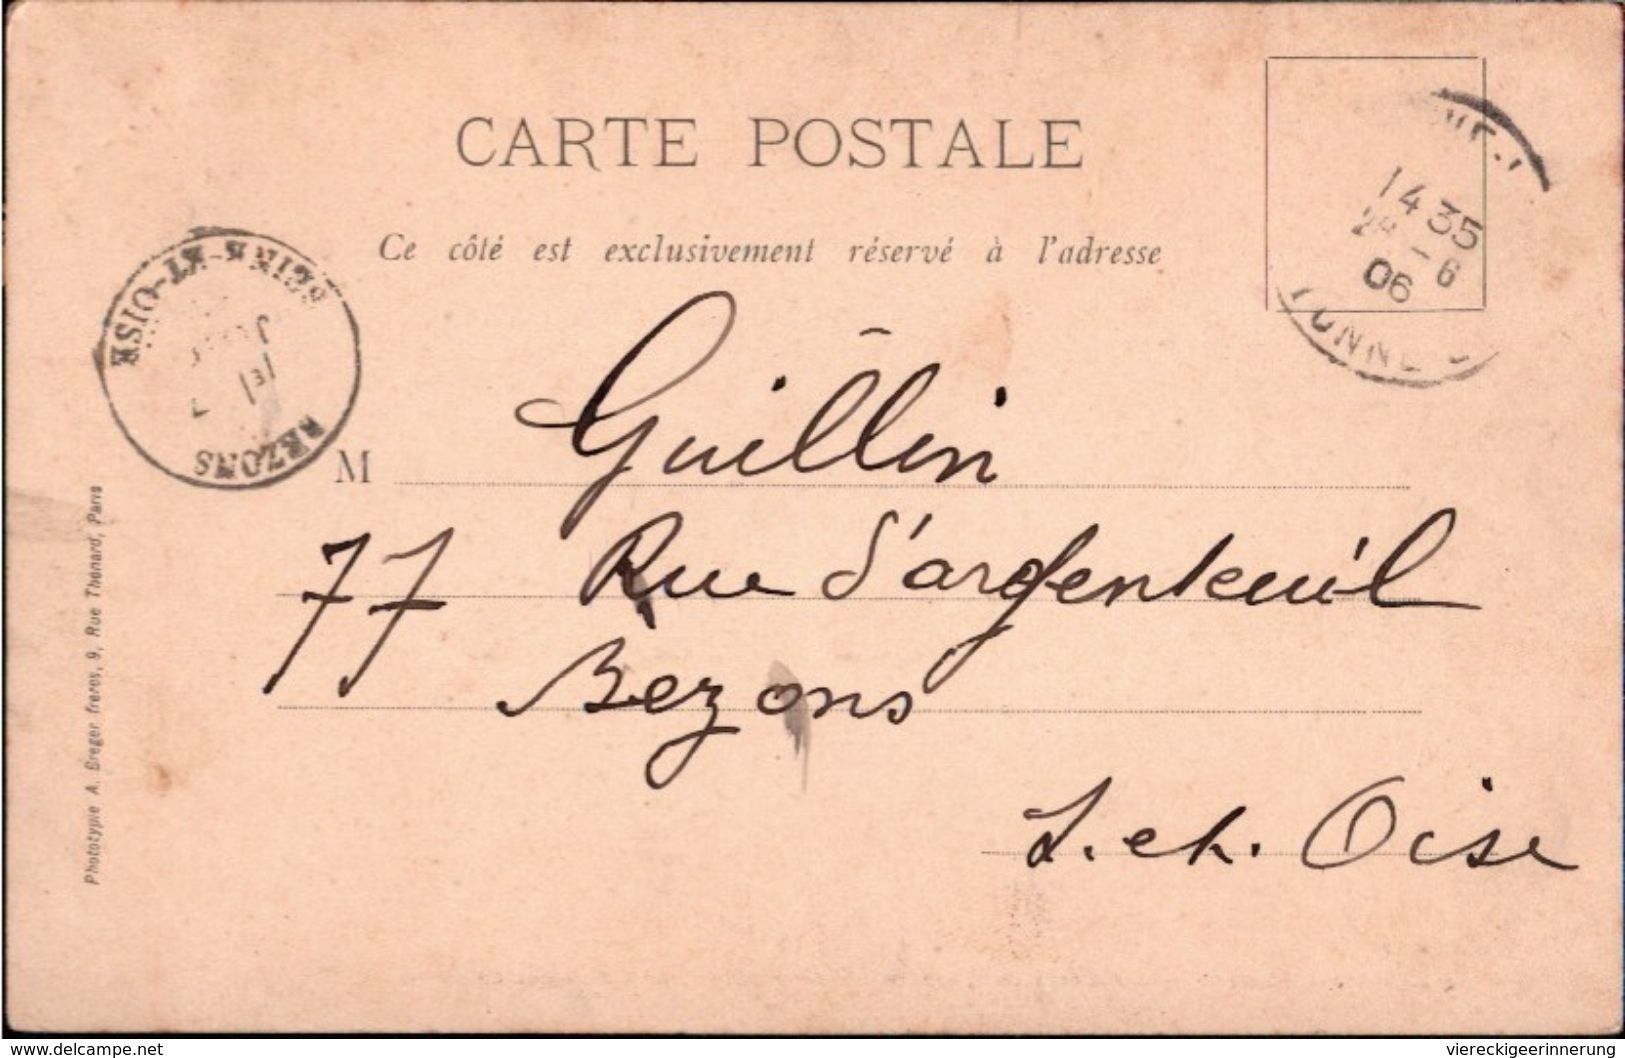 CARTE POSTALE
Ce côté est exclusivement réservé à l'adresse
14 35
06
YONNE
SEINE-ET-OISE
BEZONS
M Guillin
77 Rue d'argenteuil
Bezons
S. et. Oise
Phototypie A. Breger frères, 9, Rue Thénard, Paris
www.delcampe.net
viereckigeerinnerung